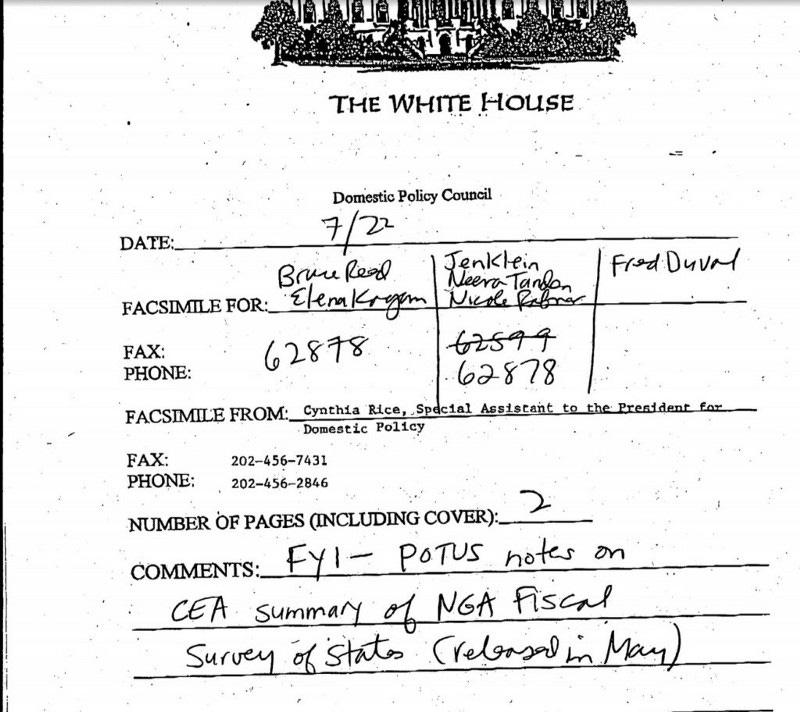 THE WHITE HOUSE
Domestic Policy Council
DATE: 7/22
Bruce Reed Jen Klein Fred Duval
Neera Tanden
FACSIMILE FOR: Elena Kagan Nicole Rabner
FAX: 62878 62599
PHONE: 62878
FACSIMILE FROM: Cynthia Rice, Special Assistant to the President for
Domestic Policy
FAX: 202-456-7431
PHONE: 202-456-2846
NUMBER OF PAGES (INCLUDING COVER): 2
COMMENTS: FYI - POTUS notes on
CEA summary of NGA Fiscal
Survey of States (released in May)